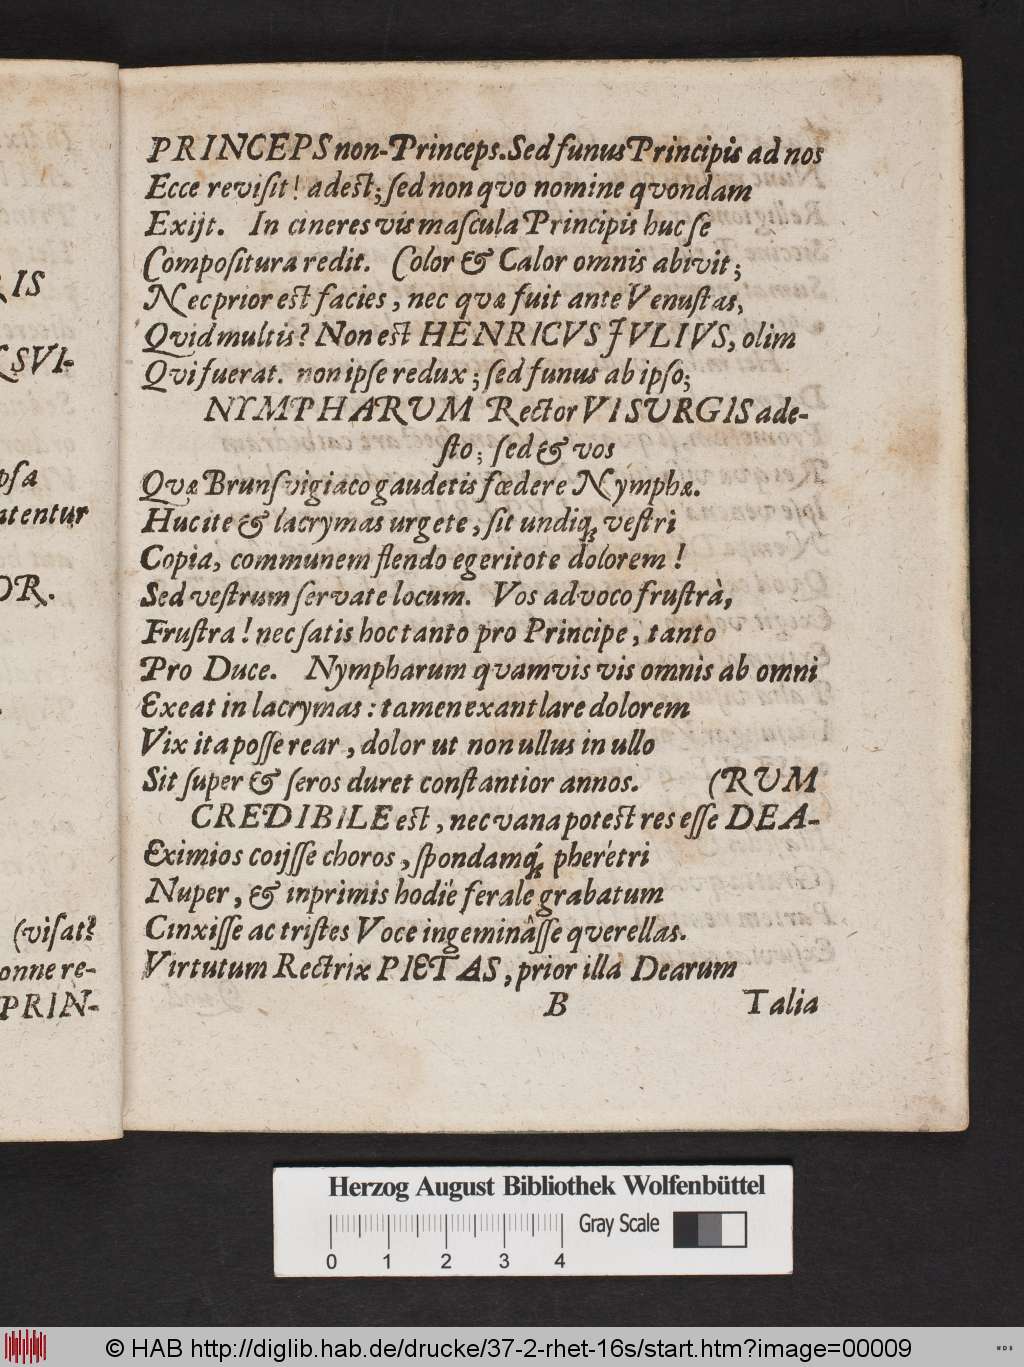 RIS
SVI-
psa
atentur
OR.
(viſat?
onne re-
PRIN-
PRINCEPS non-Princeps. Sed funus Principis ad nos
Ecce reviſit! adest; ſed non qvo nomine qvondam
Exijt. In cineres vis maſcula Principis huc ſe
Compoſitura redit. Color & Calor omnis abivit;
Nec prior est facies, nec qvæ fuit ante Venuſtas,
Qvid multis? Non est HENRICVS JVLIVS, olim
Qvi fuerat. non ipſe redux; ſed funus ab ipſo;
NYMPHARUM Rector VISURGIS ade-
ſto; ſed & vos
Qvæ Brunſvigiaco gaudetis fœdere Nymphæ.
Hucite & lacrymas urgete, ſit undiq; veſtri
Copia, communem flendo egeritote dolorem!
Sed veſtrum ſervate locum. Vos advoco fruſtrà,
Fruſtra! nec ſatis hoc tanto pro Principe, tanto
Pro Duce. Nympharum qvamvis vis omnis ab omni
Exeat in lacrymas: tamen exantlare dolorem
Vix ita poſſe rear, dolor ut non ullus in ullo
Sit ſuper & ſeros duret conſtantior annos. (RUM
CREDIBILE est, nec vana potest res eſſe DEA-
Eximios coijſſe choros, ſpondamq́; pherétri
Nuper, & inprimis hodiè ferale grabatum
Cinxiſſe ac triſtes Voce ingeminâſſe qverellas.
Virtutum Rectrix PIETAS, prior illa Dearum
B Talia
Herzog August Bibliothek Wolfenbüttel
Gray Scale
0 1 2 3 4
© HAB http://diglib.hab.de/drucke/37-2-rhet-16s/start.htm?image=00009